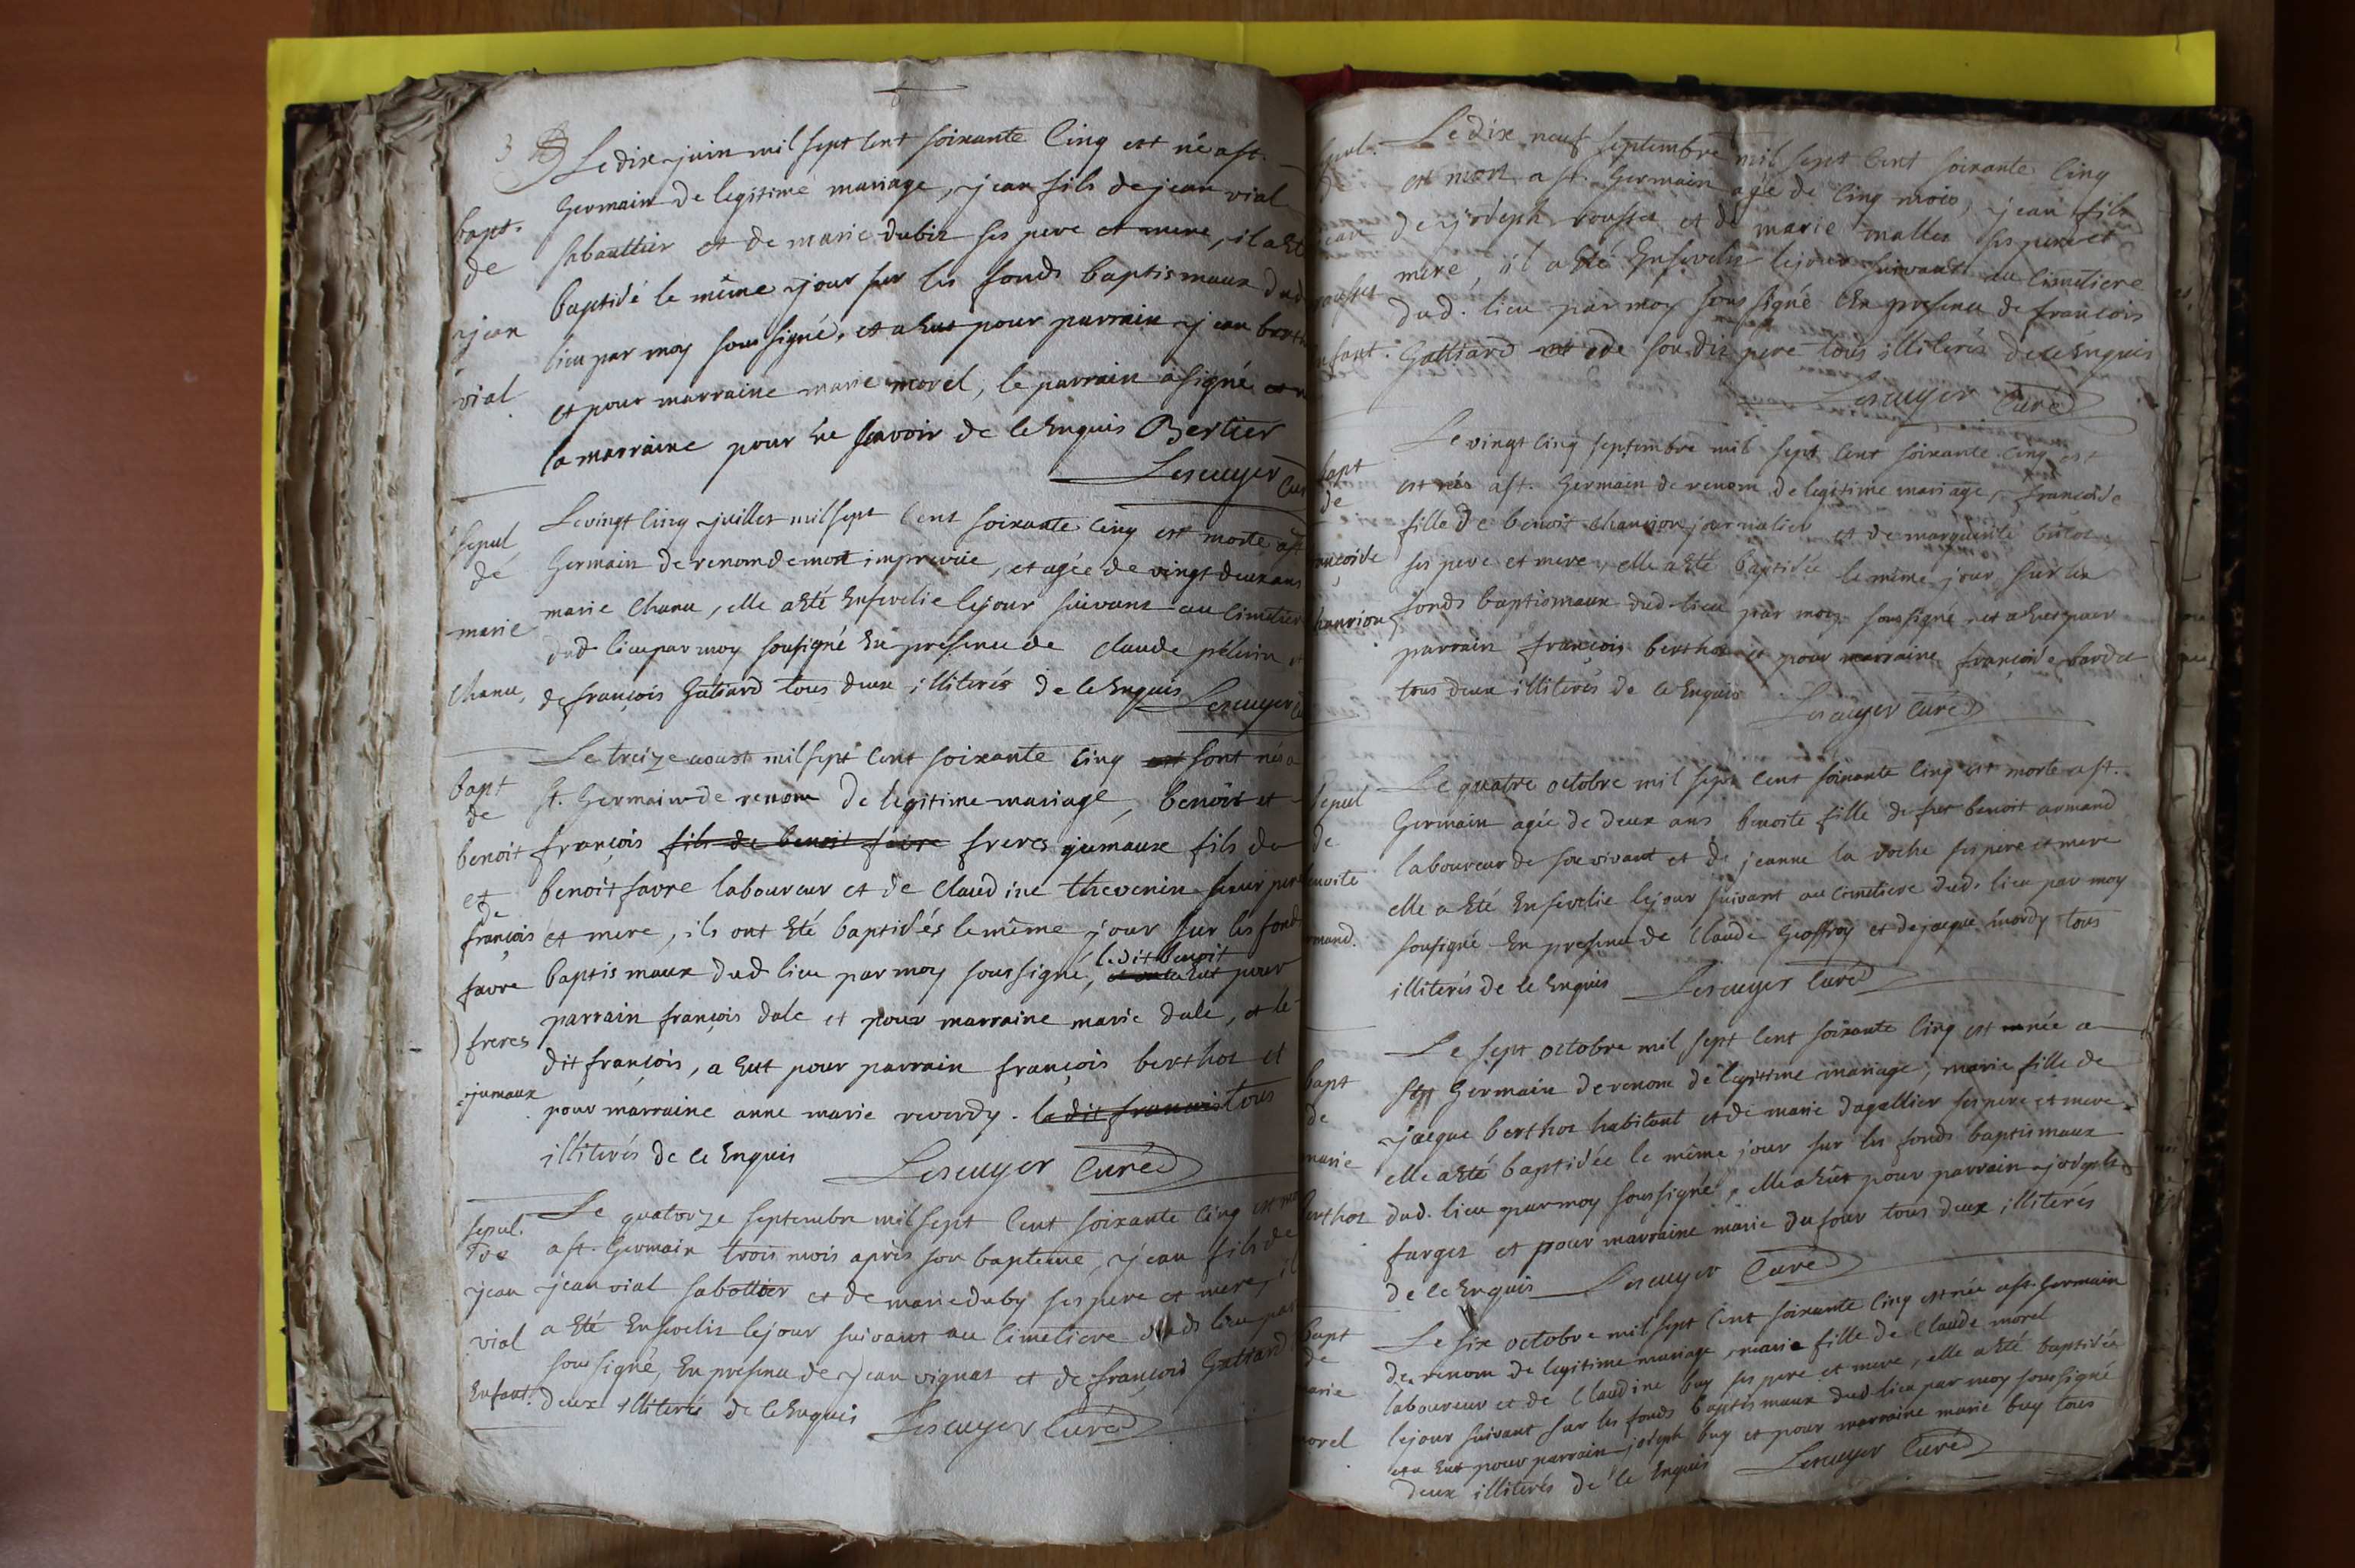 3
Le dix juin mil sept cent soixante cinq est né a st.
Germain de legitime mariage, jean fils de jean vial
sabauttier et de marie dubiz ses pere et mere, il a Eté
baptisé le même jour sur les fonds baptismaux dud
lieu par moy sous signé, et a Eut pour parrain jean
et pour marraine marie morel, le parrain a signé et n
la marraine pour ne scavoir de ce Enquis Bertier
Lescuyer Cur
bapt.
de
jean
vial
Le vingt cinq juillet mil sept cent soixante cinq est morte a st
Germain de renom de mort imprévüe, et agée de vingt deux ans
marie Chanu, elle a Eté Ensevelie le jour suivant au cimetier
dud. lieu par moy sousigné En presence de Claude pélerin et
de françois Galliard tous deux illiterés de ce Enquis Lescuyer
sepul
de
marie
Chanu,
Le treize aoust mil sept cent soixante cinq est sont nés a
st. Germain de renom de legitime mariage, benoit et
françois fils de benoit favre freres jumaux fils de
benoit favre laboureur et de Claudine thevenin sieur pere
et mere, ils ont Eté baptisés le même jour sur les fond
baptismaux dud lieu par moy soussigné, ledit benoit a Eut pour
parrain françois dale et pour marraine marie dale, et le
dit françois, a Eut pour parrain françois berthot et
pour marraine anne marie reverdy. le dit francois tous
illiterés de ce Enquis Lescuyer Curé
bapt
de
benoit
et
de
françois
favre
freres
jumaux
Le quatorze septembre mil sept cent soixante cinq est mo
a st. Germain trois mois après son bapteme, jean fils de
jean vial sabottier et de marie duby ses pere et mere, il
a Eté Ensevelit le jour suivant au cimetiere dud. lieu par
sous signé, En presence de jean vignat et de françois Galliard
deux illiterés de ce Enquis Lescuyer Curé
sepul.
de
jean
vial
Enfant.
Le dix neuf septembre mil sept cent soixante cinq
est mort a st. Germain agée de cinq mois, jean fils
de joseph rousset et de marie mallet ses pere et
mere, il a Eté Ensevelie le jour suivant au cimetiere
dud. lieu par moy sous signé En presence de françois
Galliard et de son dit pere tous illiterés de ce Enquis
Lescuyer Curé
epul.
ean
rousset
nfant.
Le vingt cinq septembre mil sept cent soixante cinq est
est née a st. Germain de renom de legitime mariage, françoise
fille de benoit chanrion journalier et de marguerite
ses pere et mere, elle a Eté baptisée le même jour sur les
fonds baptismaux dud lieu par moy soussigné et a Eut pour
parrain françois berthot et pour marraine françoise bardet
tous deux illiterés de ce Enquis
Lescuyer Curé
bapt
de
ançoise
hanrion
Le quatre octobre mil sept cent soixante cinq est morte a st.
Germain agée de deux ans benoite fille de fut benoit armand
laboureur de son vivant et de jeanne la roche ses pere et mere
elle a Eté Ensevelie le jour suivant au cimetiere dud. lieu par moy
sousigné En presence de Claude Geoffroy et de jacque tous
illiterés de ce Enquis Lescuyer Curé
sepul
de
enoite
rmand.
Le sept octobre mil sept cent soixante cinq est née a
st Germain de renom de legitime mariage, marie fille de
jacque berthot habitant et de marie dagallier ses pere et mere
elle a Eté baptisée le même jour sur les fonds baptismaux
dud. lieu par moy soussigné, elle a Eut pour parrain joseph
farget et pour marraine marie dufour tous deux illiterés
de ce Enquis Lescuyer Curé
bapt
de
marie
berthot
Le six octobre mil sept cent soixante cinq est née a st. Germain
de renom de legitime mariage, marie fille de Claude morel
laboureur et de Claudine buy ses pere et mere, elle a Eté baptisée
le jour suivant sur les fonds baptismaux dud lieu par moy soussigné
et a Eut pour parrain joseph buy et pour marraine marie buy tous
deux illiterés de ce Enquis Lescuyer Curé
bapt
de
arie
orel